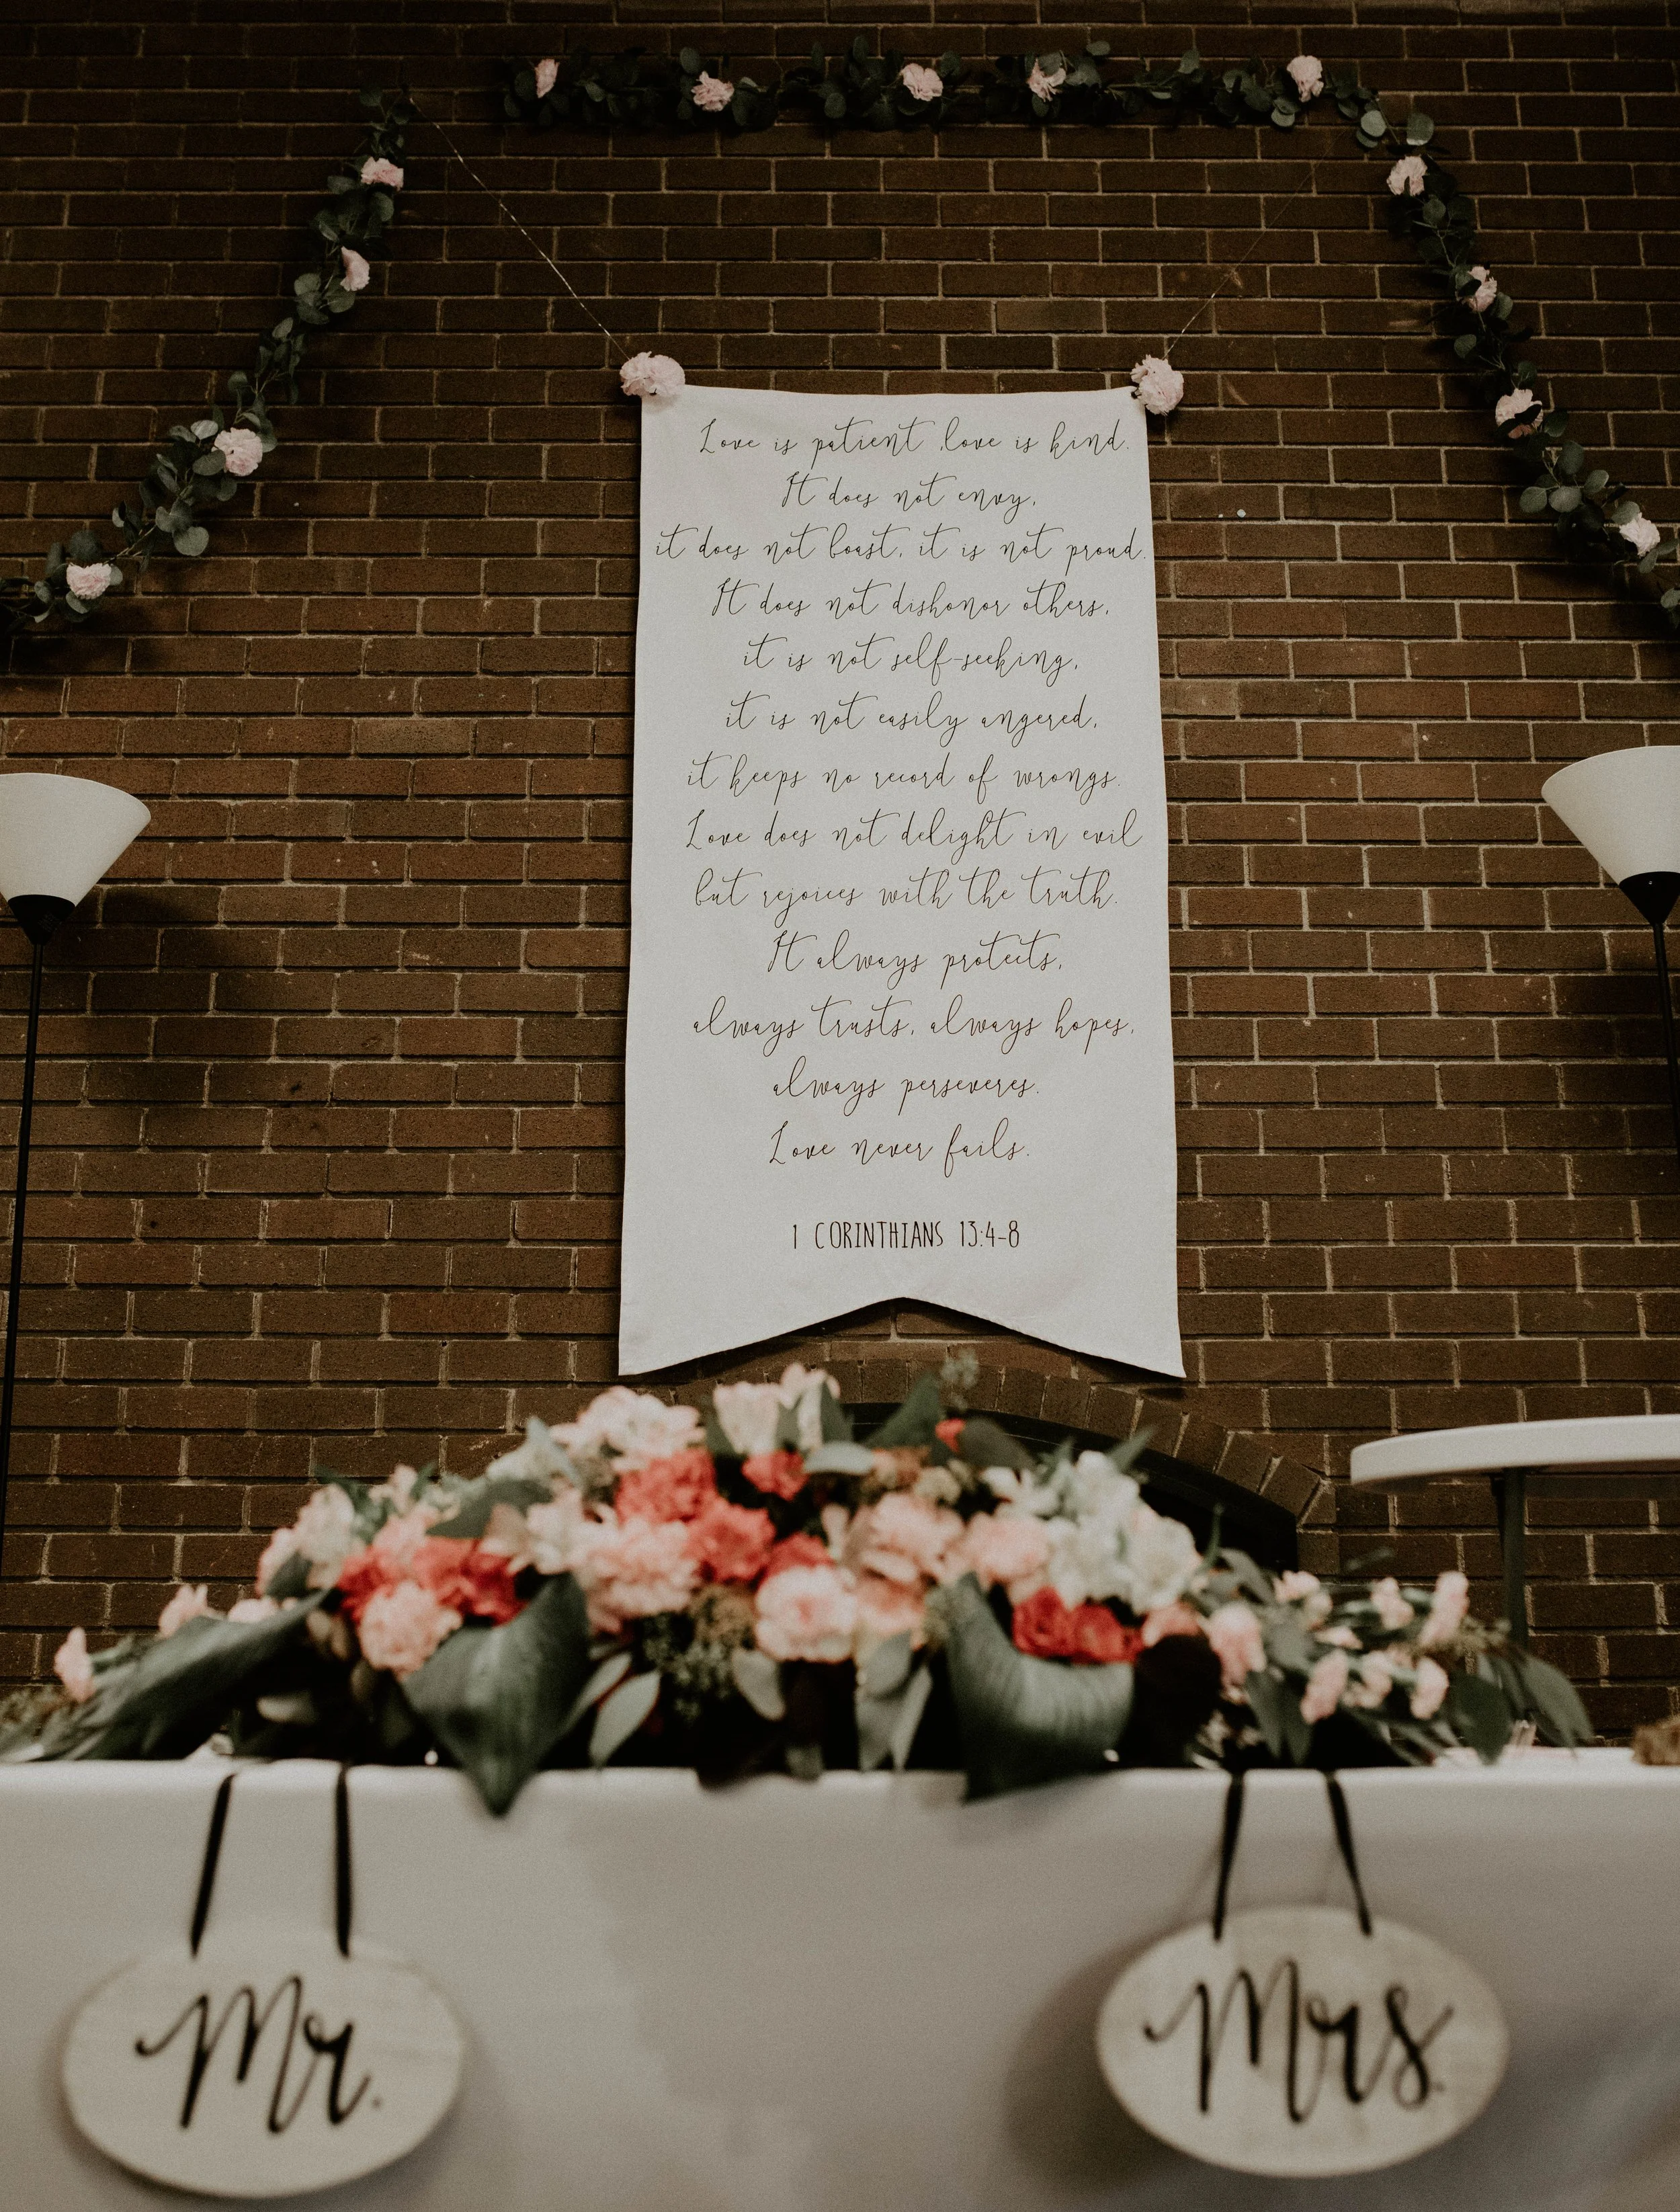 Love is patient, love is kind.
It does not envy,
it does not boast, it is not proud.
It does not dishonor others,
it is not self-seeking,
it is not easily angered,
it keeps no record of wrongs.
Love does not delight in evil
but rejoices with the truth.
It always protects,
always trusts, always hopes,
always perseveres.
Love never fails.
1 CORINTHIANS 13:4-8
Mr.
Mrs.